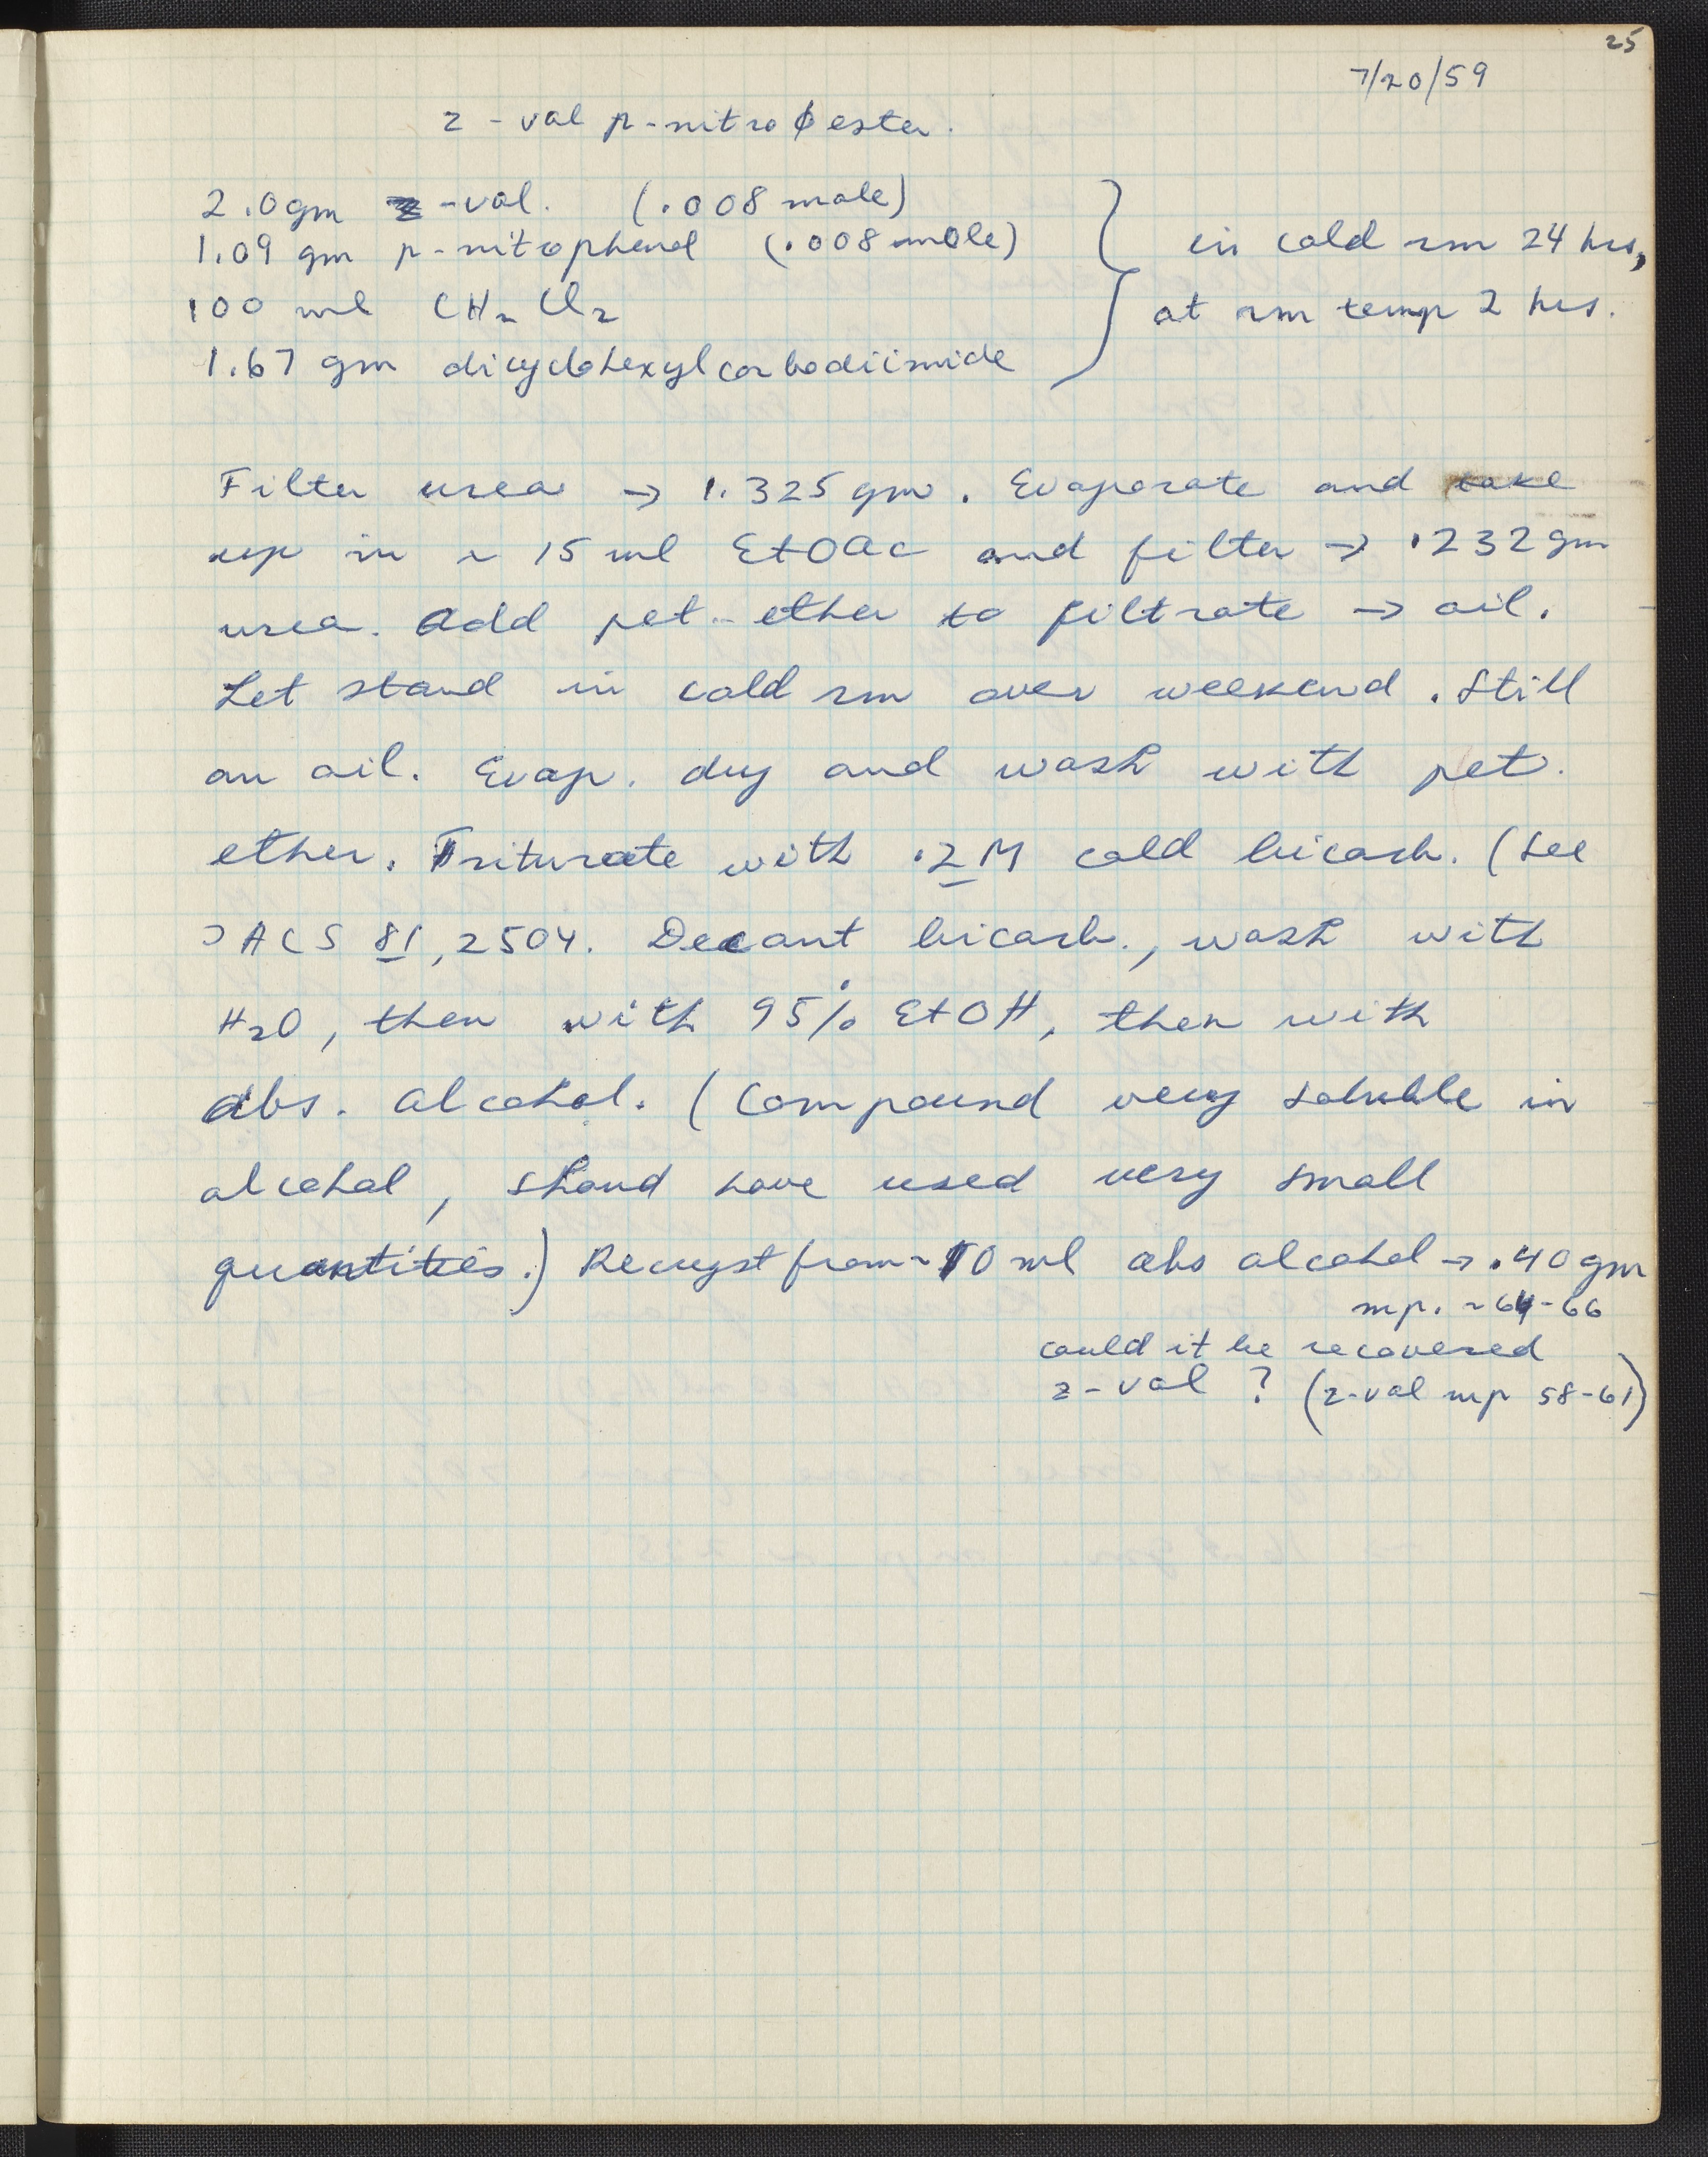 25
7/20/59
z - val p-nitro ϕ ester.
2.0 gm z-val. (.008 mole)
1.09 gm p-nitrophenol (.008 mole)
100 ml CH2Cl2
1.67 gm dicyclohexylcarbodiimide
} in cold rm 24 hrs,
at rm temp 2 hrs.
Filter urea → 1.325 gm. Evaporate and take
up in ~ 15 ml EtOAc and filter → .232 gm
urea. Add pet. ether to filtrate → oil.
Let stand in cold rm over weekend. Still
an oil. Evap. dry and wash with pet.
ether. Triturate with .2M cold bicarb. (See
JACS 81, 2504. Decant bicarb., wash with
H2O, then with 95% EtOH, then with
abs. alcohol. (Compound very soluble in
alcohol, shoud have used very small
quantities.) Recryst from ~10 ml abs alcohol → .40 gm
mp. ~64-66
could it be recovered
z-val ? (z-val mp 58-61)